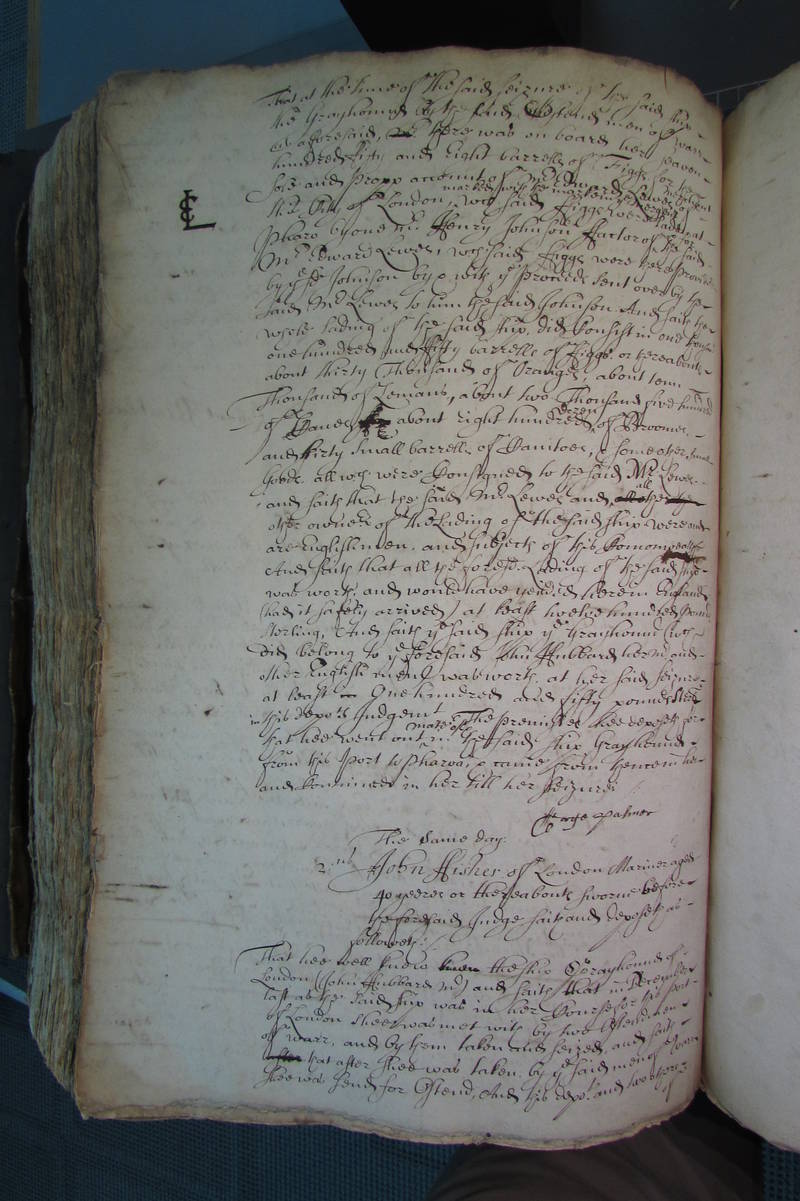 That at the time of the said seizure of the said shipp
the Grayhound by the said Ostend men of warr
as aforesaid, there was on board her seaven
hundred fifty and eight barrells of Figgs for the
sole and propp account of Mr Edward Lewes
of London, wch said Figgs were
marked with the marke in the margent
Pharo by one Mr Henry Johnson Factor of the said
Mr Edward Lewes, wch said Figgs were there provided
by ye sd Johnson by & with ye proceeds sent over by the
said Mr Lewes to him the said Johnson And saith the
whole lading of the said shipp did Consist in one thousand
one hundred and fifty barrells of Figgs or thereabouts
about thirty Thousand of Oranges, about tenn
Thousand of Lemans, about two Thousand five hundred
of Canes about eight hundred dozen of Broomes
and fifty small barrells of Panitoes, & some other small
goods all wch were Consigned to the said Mr Lewes
and saith that the said Mr Lewes and all the
other owners of the Lading of the said shipp were and
are Englishmen and subjects of this Comonwealth
And saith that all the foresd Lading of the said shipp
was worth and would have yeilded therein England
(had it safely arrived) at least twelve hundred pounds
sterling, And saith ye said shipp ye Grayhound (wch
did belong to ye foresaid John Hubbard her Mr and
other English men) was worth at her said seizure
at least One hundred and fifty pounds sterling
in this depots Judgent. The premisses hee deposeth for
that hee went out mate of the said shipp Grayhound
from this Port to Pharo, & came from thence in her
and Continued in her till her seizure
George Palmer
The same day:
2nd John Fisher of London Mariner aged
40 yeeres or thereabouts sworne before
the foresaid Judge saith and deposeth as
followeth:
That hee well knew the shipp Grayhound of
London (John Hubbard Mr) and saith that in December
last as the said shipp was in her Course for this Port
of London shee was met with by two Ostend men
of warr, and by them taken and seized, and saith
that after shee was taken by ye said men of warr
shee was send for Ostend, And this depot and two others